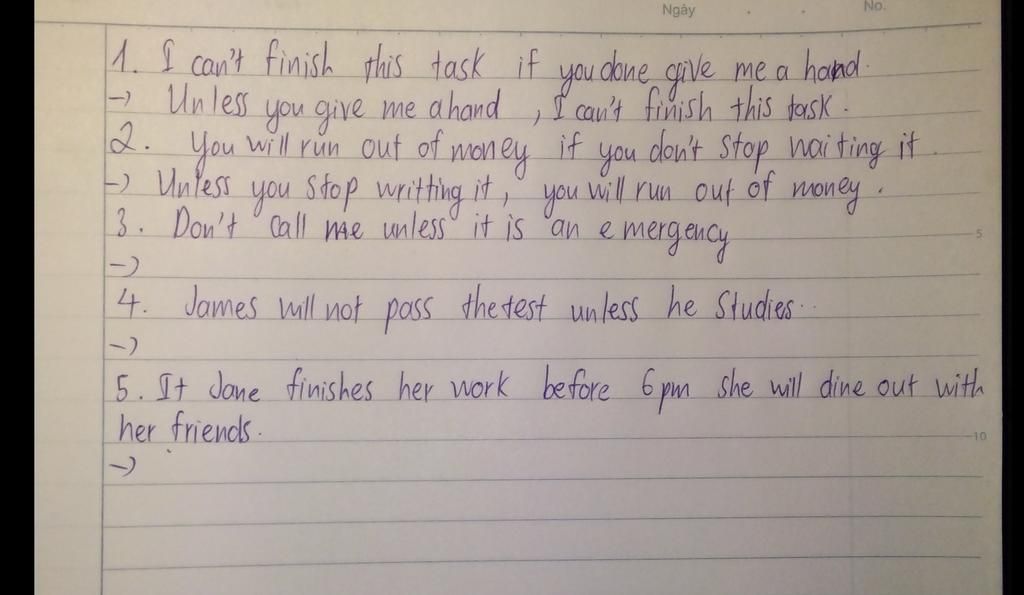 Ngày . . No.
1. I can't finish this task if you done give me a hand.
-> Unless you give me a hand , I can't finish this task .
2. You will run out of money if you don't stop waiting it
-> Unless you stop writting it , you will run out of money .
3. Don't call me unless it is an emergency
5
->
4. James will not pass the test unless he studies ..
->
5. It Jane finishes her work before 6pm she will dine out with
her friends.
10
->